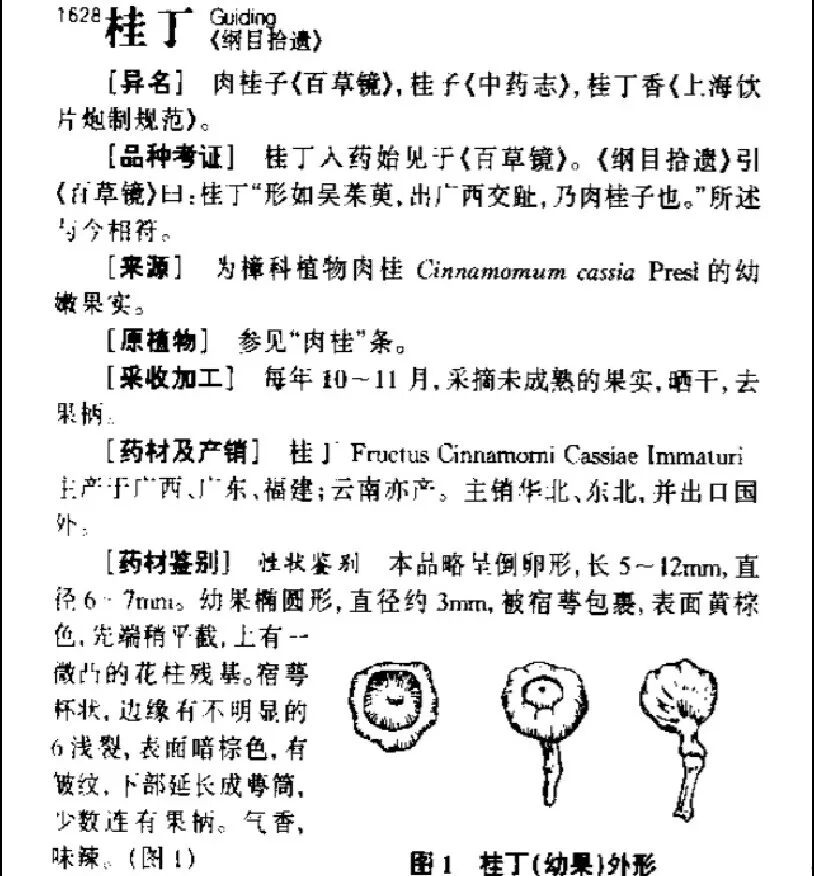 1628 桂丁 Guiding
《纲目拾遗》
[异名] 肉桂子《百草镜》,桂子《中药志》,桂丁香《上海饮
片炮制规范》。
[品种考证] 桂丁入药始见于《百草镜》。《纲目拾遗》引
《百草镜》曰:桂丁“形如吴茱萸,出广西交趾,乃肉桂子也。”所述
与今相符。
[来源] 为樟科植物肉桂 Cinnamomum cassia Presl 的幼
嫩果实。
[原植物] 参见“肉桂”条。
[采收加工] 每年 10~11 月,采摘未成熟的果实,晒干,去
果柄。
[药材及产销] 桂丁 Fructus Cinnamomi Cassiae Immaturi
主产于广西、广东、福建;云南亦产。主销华北、东北,并出口国
外。
[药材鉴别] 性状鉴别 本品略呈倒卵形,长 5~12mm,直
径 6~7mm。幼果椭圆形,直径约 3mm,被宿萼包裹,表面黄棕
色,先端稍平截,上有一
微凸的花柱残基。宿萼
杯状,边缘有不明显的
6 浅裂,表面暗棕色,有
皱纹,下部延长成萼筒,
少数连有果柄。气香,
味辣。(图 1)
图 1 桂丁(幼果)外形